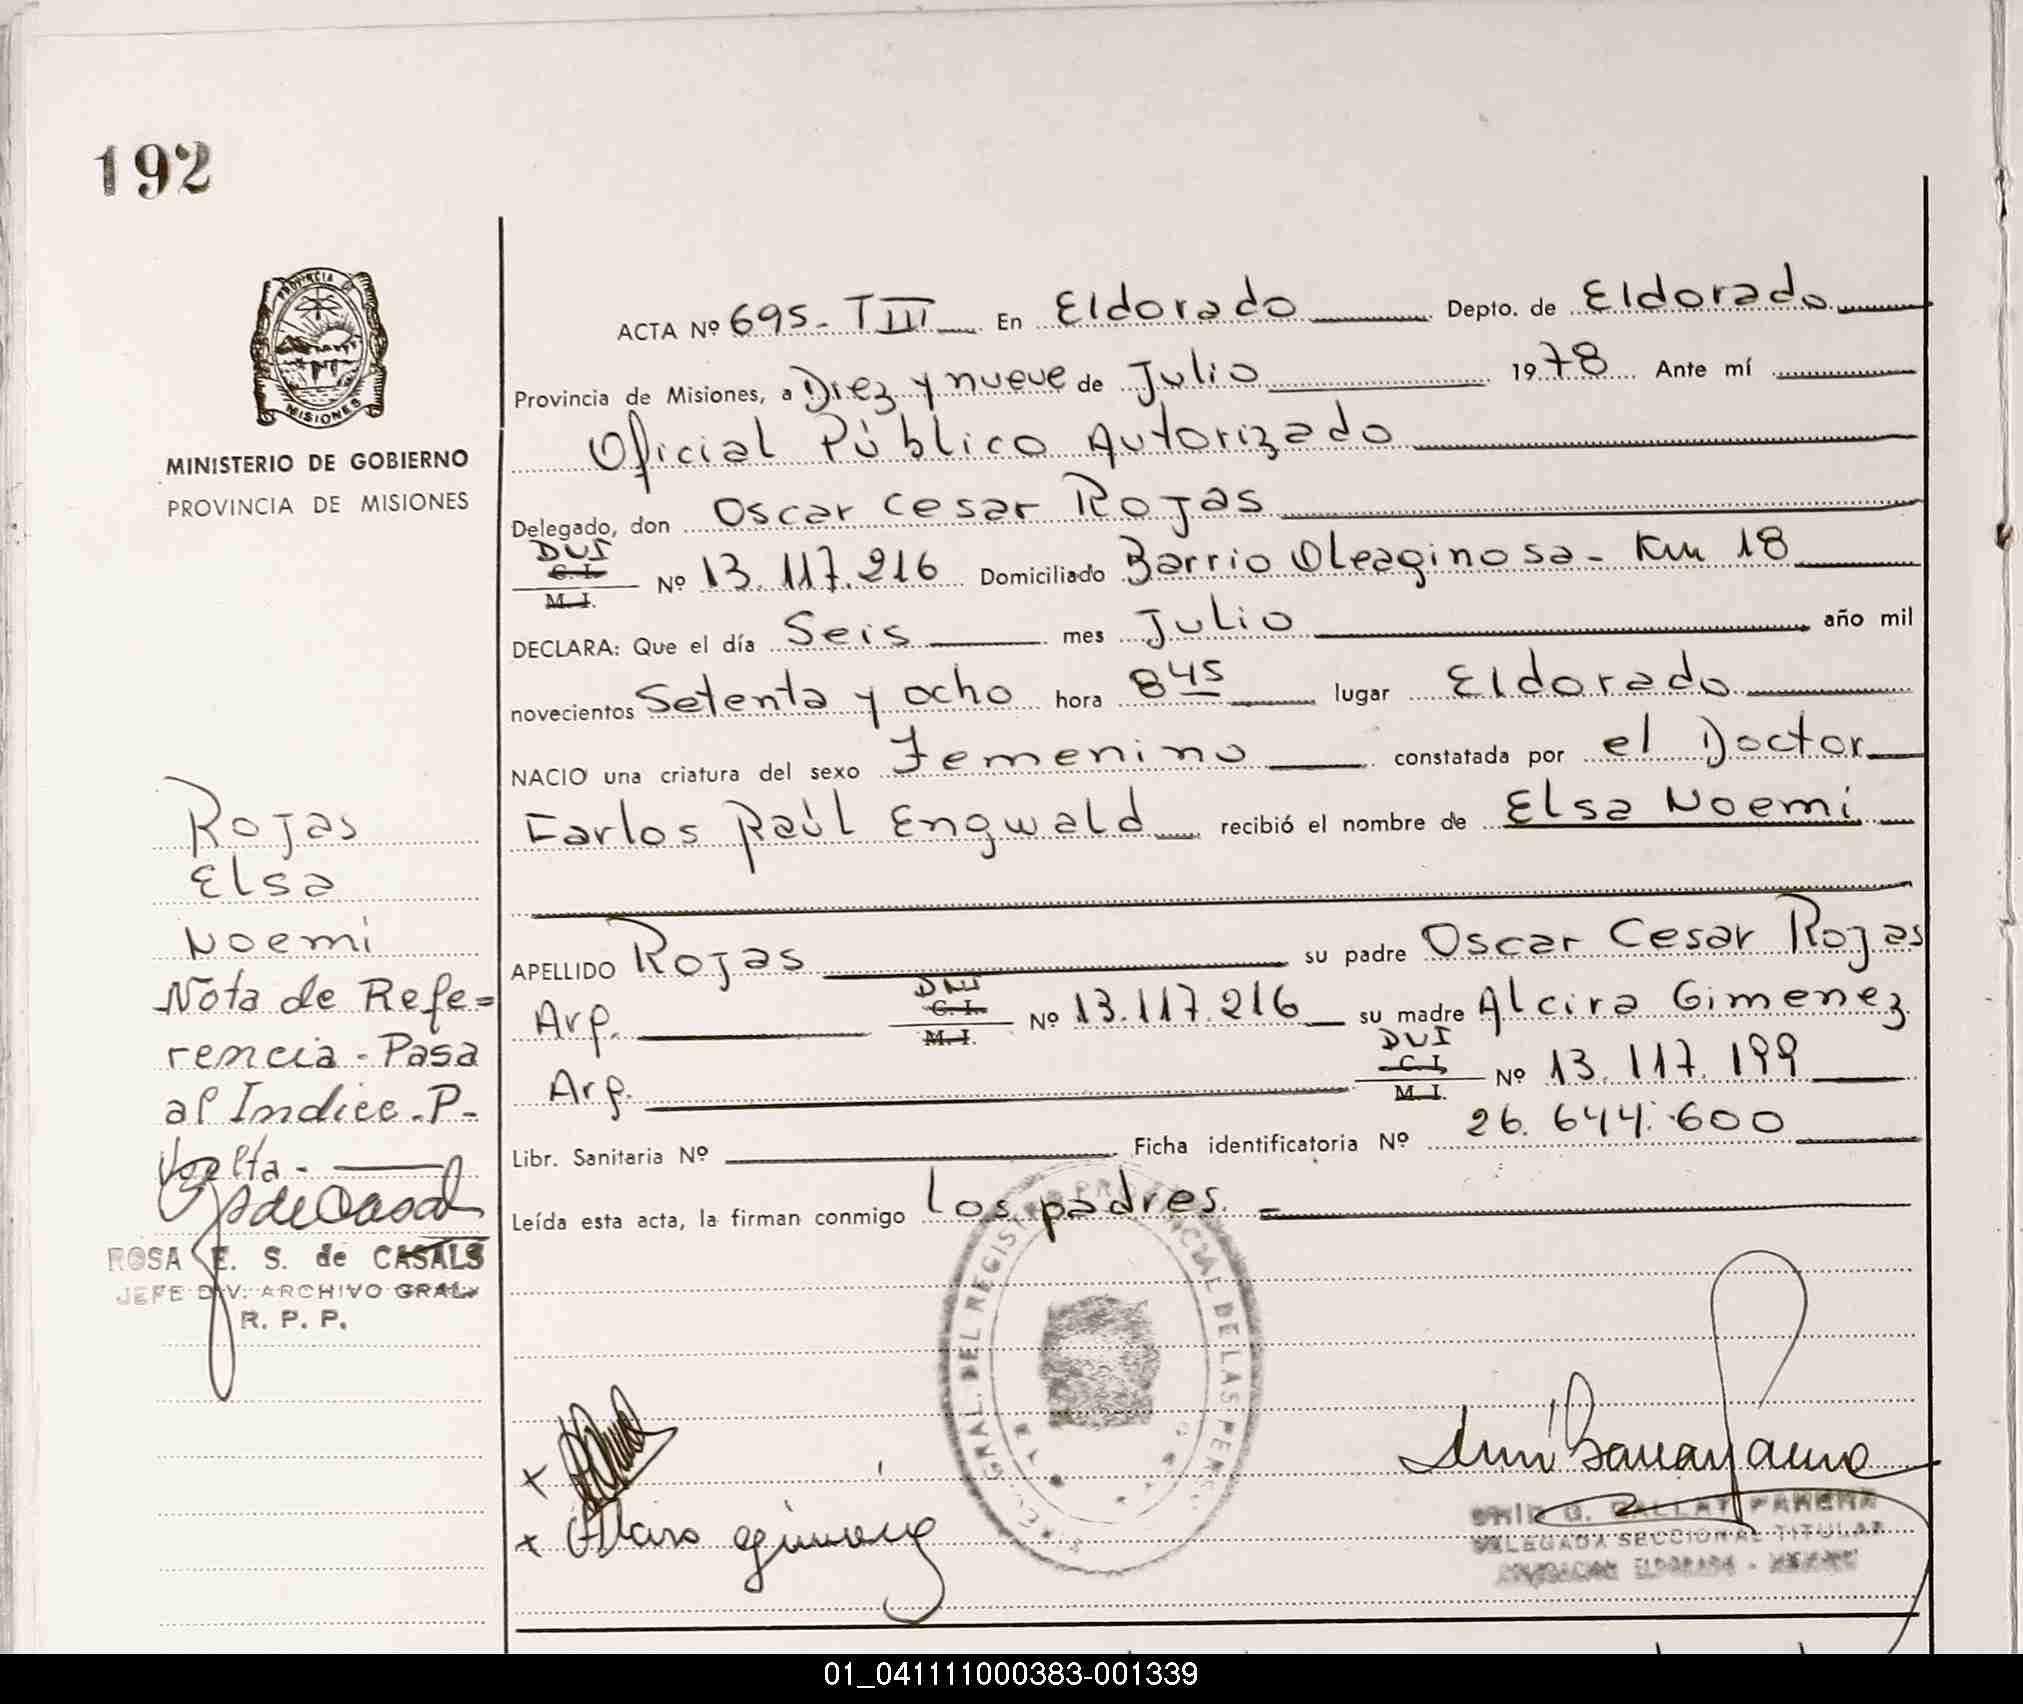 192
PROVINCIA DE
MISIONES
MINISTERIO DE GOBIERNO
PROVINCIA DE MISIONES
ACTA Nº 695-TIII En Eldorado Depto. de Eldorado
Provincia de Misiones, a Diez y nueve de Julio 1978 Ante mí
Oficial Público Autorizado
Delegado, don Oscar Cesar Rojas
DNI
C. I.
M. I.
Nº 13.117.216 Domiciliado Barrio Oleaginosa - Km 18
DECLARA: Que el día Seis mes Julio año mil
novecientos Setenta y ocho hora 8 45 lugar Eldorado
NACIO una criatura del sexo Femenino constatada por el Doctor
Carlos Raúl Engwald recibió el nombre de Elsa Noemi
APELLIDO Rojas su padre Oscar Cesar Rojas
Arg. DNI C. I. M. I. Nº 13.117.216 su madre Alcira Gimenez
Arg. DNI C. I. M. I. Nº 13.117.199
Libr. Sanitaria Nº Ficha identificatoria Nº 26.644.600
Leída esta acta, la firman conmigo los padres. =
Rojas
Elsa
Noemi
Nota de Refe=
rencia - Pasa
al Indice - P-
Vuelta -
ROSA E. S. de CASALS
JEFE DIV. ARCHIVO GRAL.
R. P. P.
GRAL. DEL REGISTRO PROVINCIAL DE LAS PERS.
DELEGADA SECCIONAL TITULAR
01_041111000383-001339